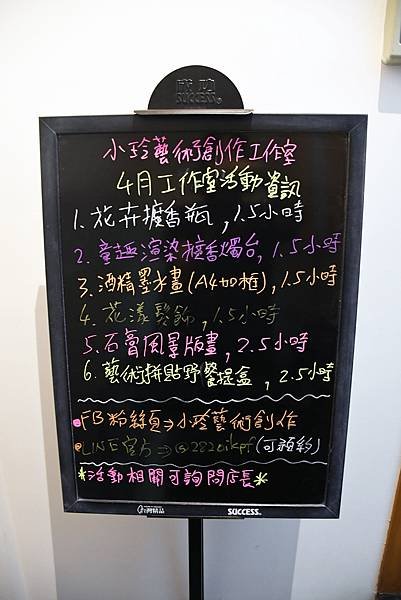 成功
SUCCESS
小玲藝術創作工作室
4月工作室活動資訊
1. 花卉擴香瓶, 1.5小時
2. 童趣渲染擴香燭台, 1.5小時
3. 酒精墨水畫(A4加框), 1.5小時
4. 花漾髮飾, 1.5小時
5. 石膏風景版畫, 2.5小時
6. 藝術拼貼野餐提盒, 2.5小時
FB粉絲頁⇒小玲藝術創作
LINE官方⇒@282oikpf(可預約)
*活動相關可詢問店長*
SUCCESS